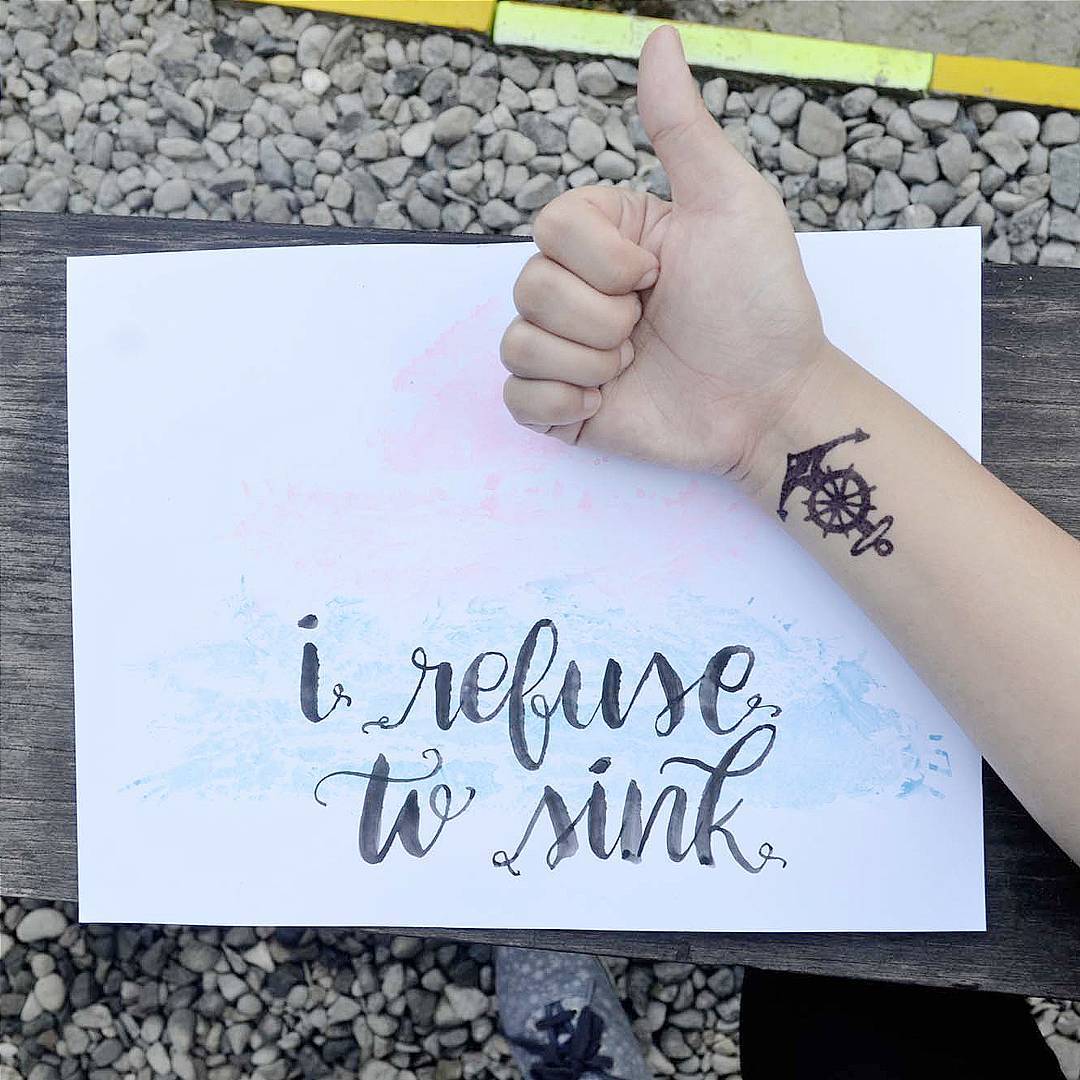 i refuse
to sink